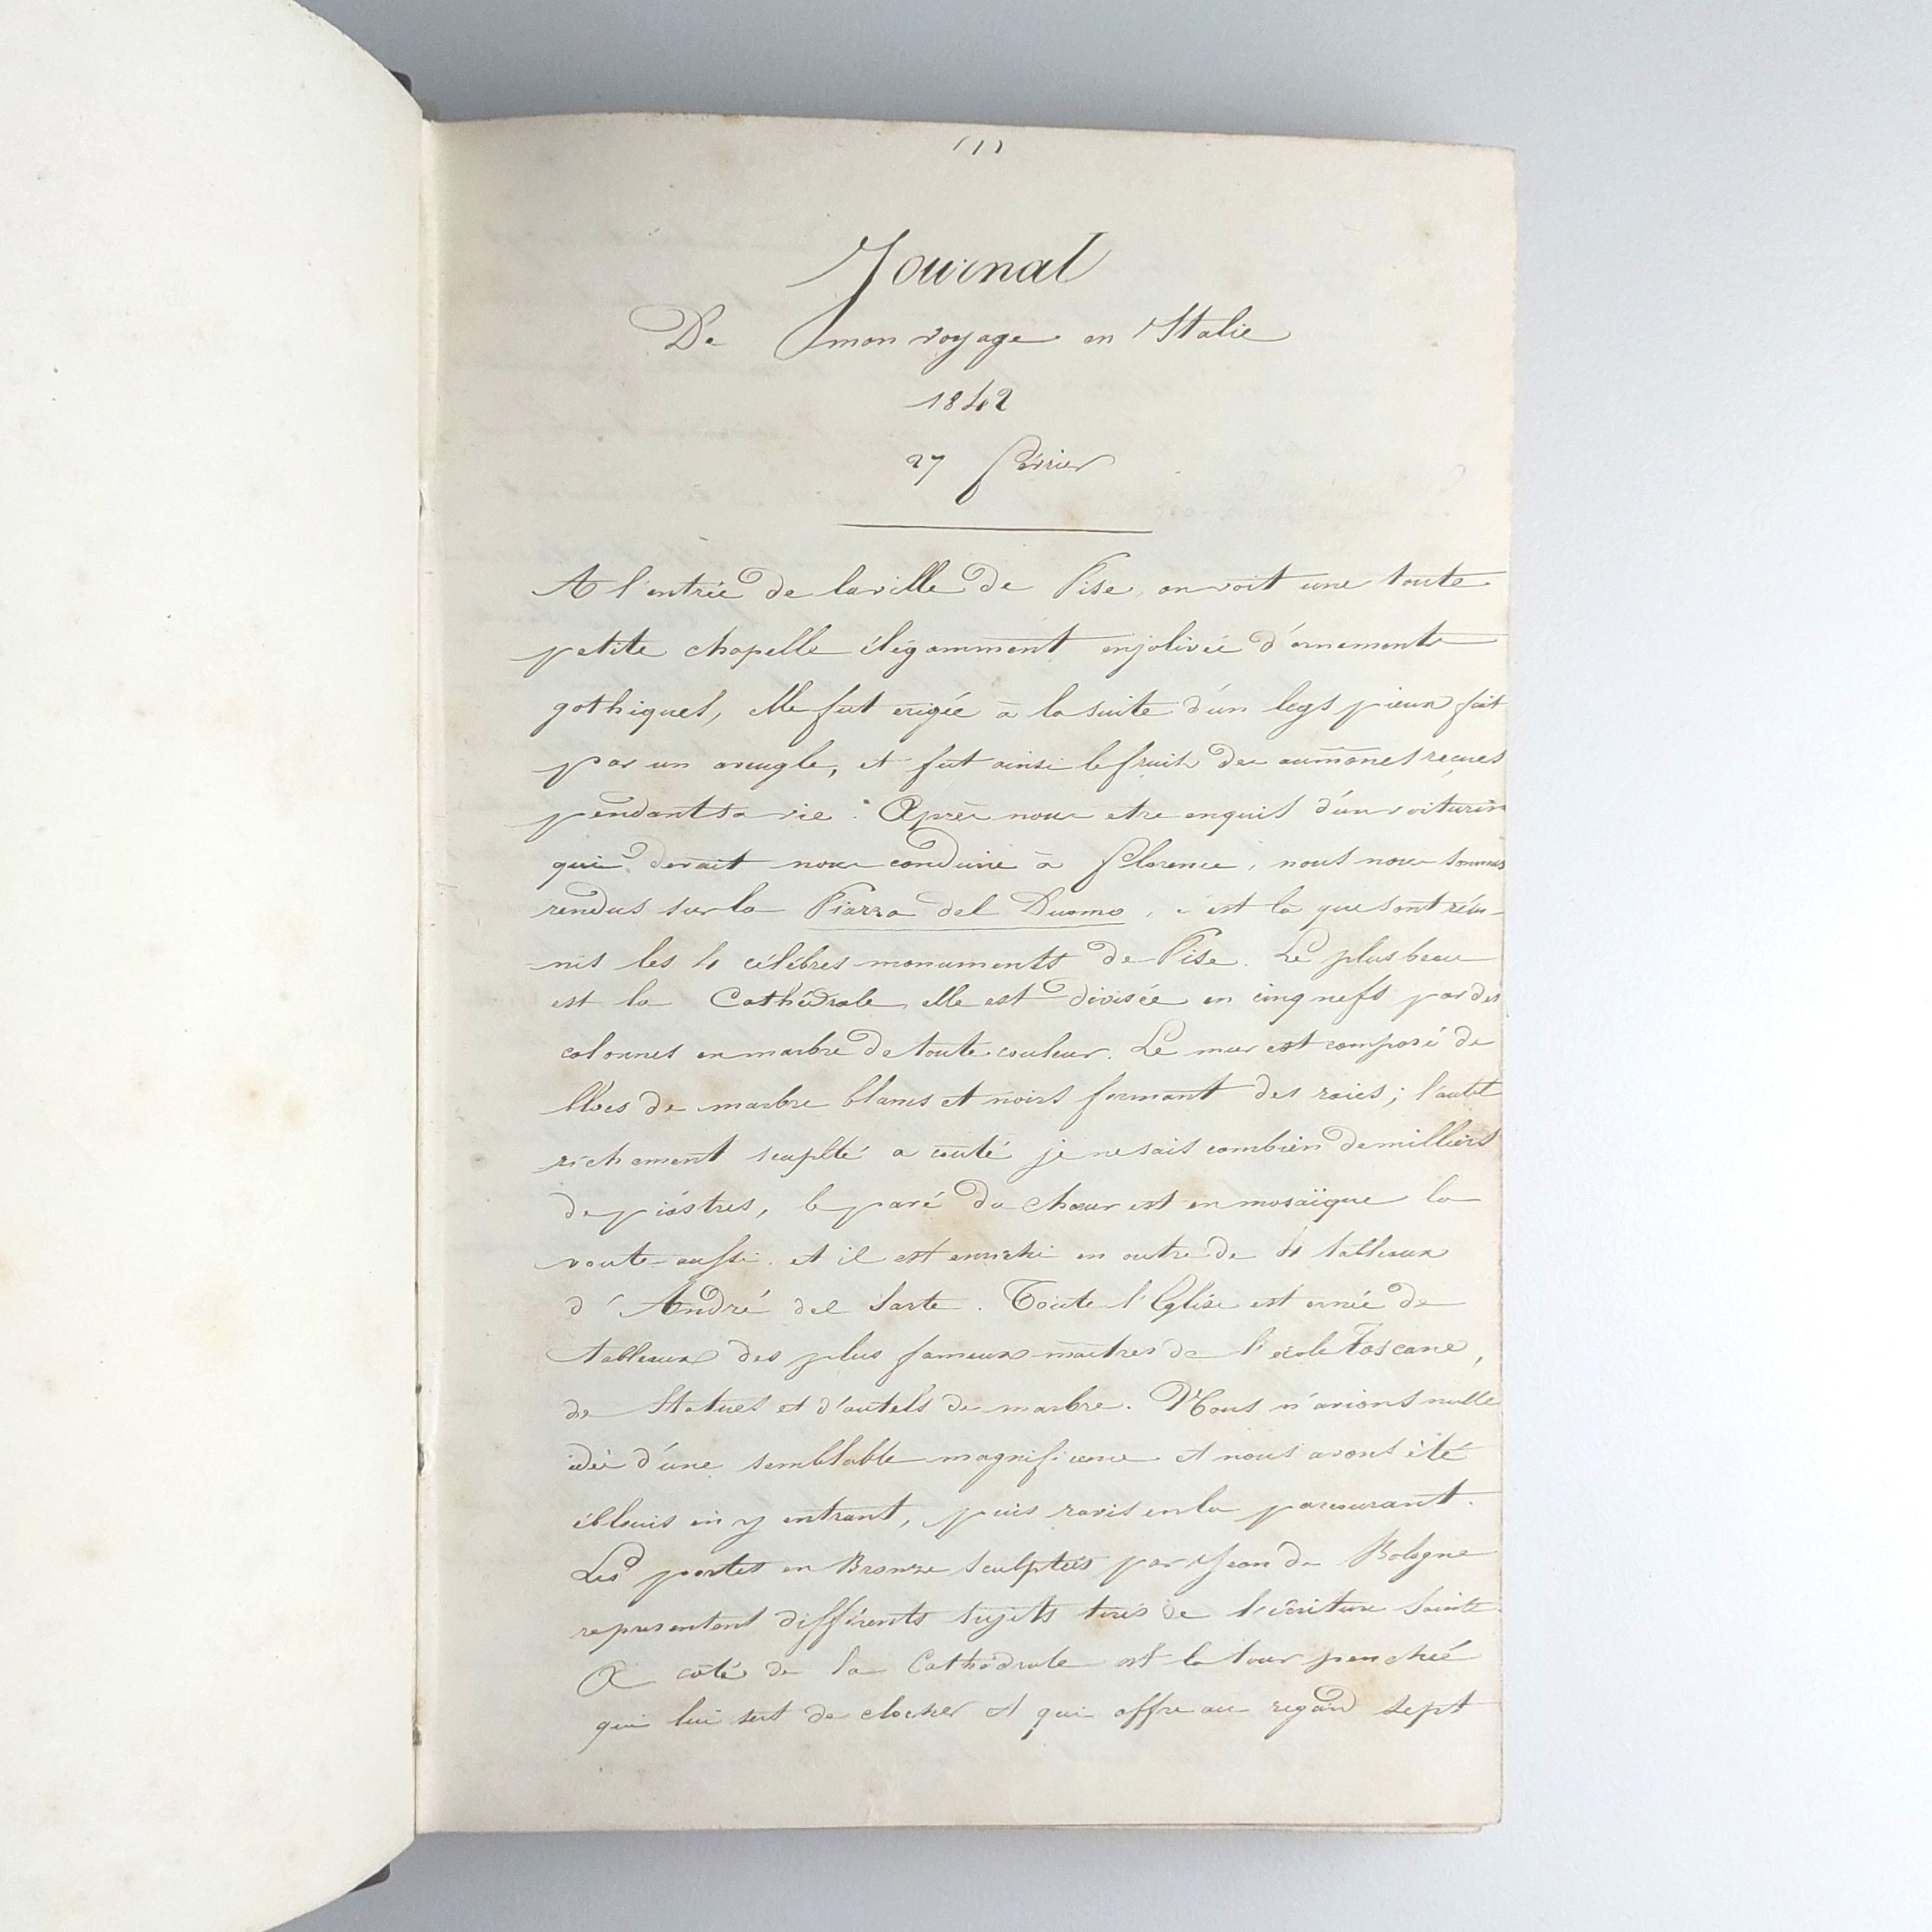 (1)
Journal
De mon voyage en Italie
1842
27 février
A l'entrée de la ville de Pise, on voit une toute
petite chapelle élégamment enjolivée d'ornements
gothiques, elle fut erigée à la suite d'un legs pieux fait
par un aveugle, et fut ainsi le fruit des aumônes reçues
pendant sa vie. Après nous etre enquis d'un voiturin
qui devait nous conduire à florence, nous nous sommes
rendus sur la Piazza del Duomo, c'est là que sont réu-
nis les 4 célèbres monuments de Pise. Le plus beau
est la Cathédrale, elle est divisée en cinq nefs par des
colonnes en marbre de toute couleur. Le mur est composé de
blocs de marbre blancs et noirs formant des raies; l'autel
richement scuplté a couté je ne sais combien de milliers
de piastres, le pavé du chœur est en mosaïque la
voute aussi et il est enrichi en outre de 4 tableaux
d'André del Sarte. Toute l'Eglise est ornée de
tableaux des plus fameux maîtres de l'école Toscane,
de Statues et d'autels de marbre. Nous n'avions nulle
idée d'une semblable magnificence et nous avons été
éblouis en y entrant, puis ravis en la parcourant.
Les portes en Bronze sculptées par Jean de Bologne
representent différents sujets tirés de l'écriture Sainte.
A côté de la Cathédrale est la tour penchée
qui lui sert de clocher et qui offre au regard sept